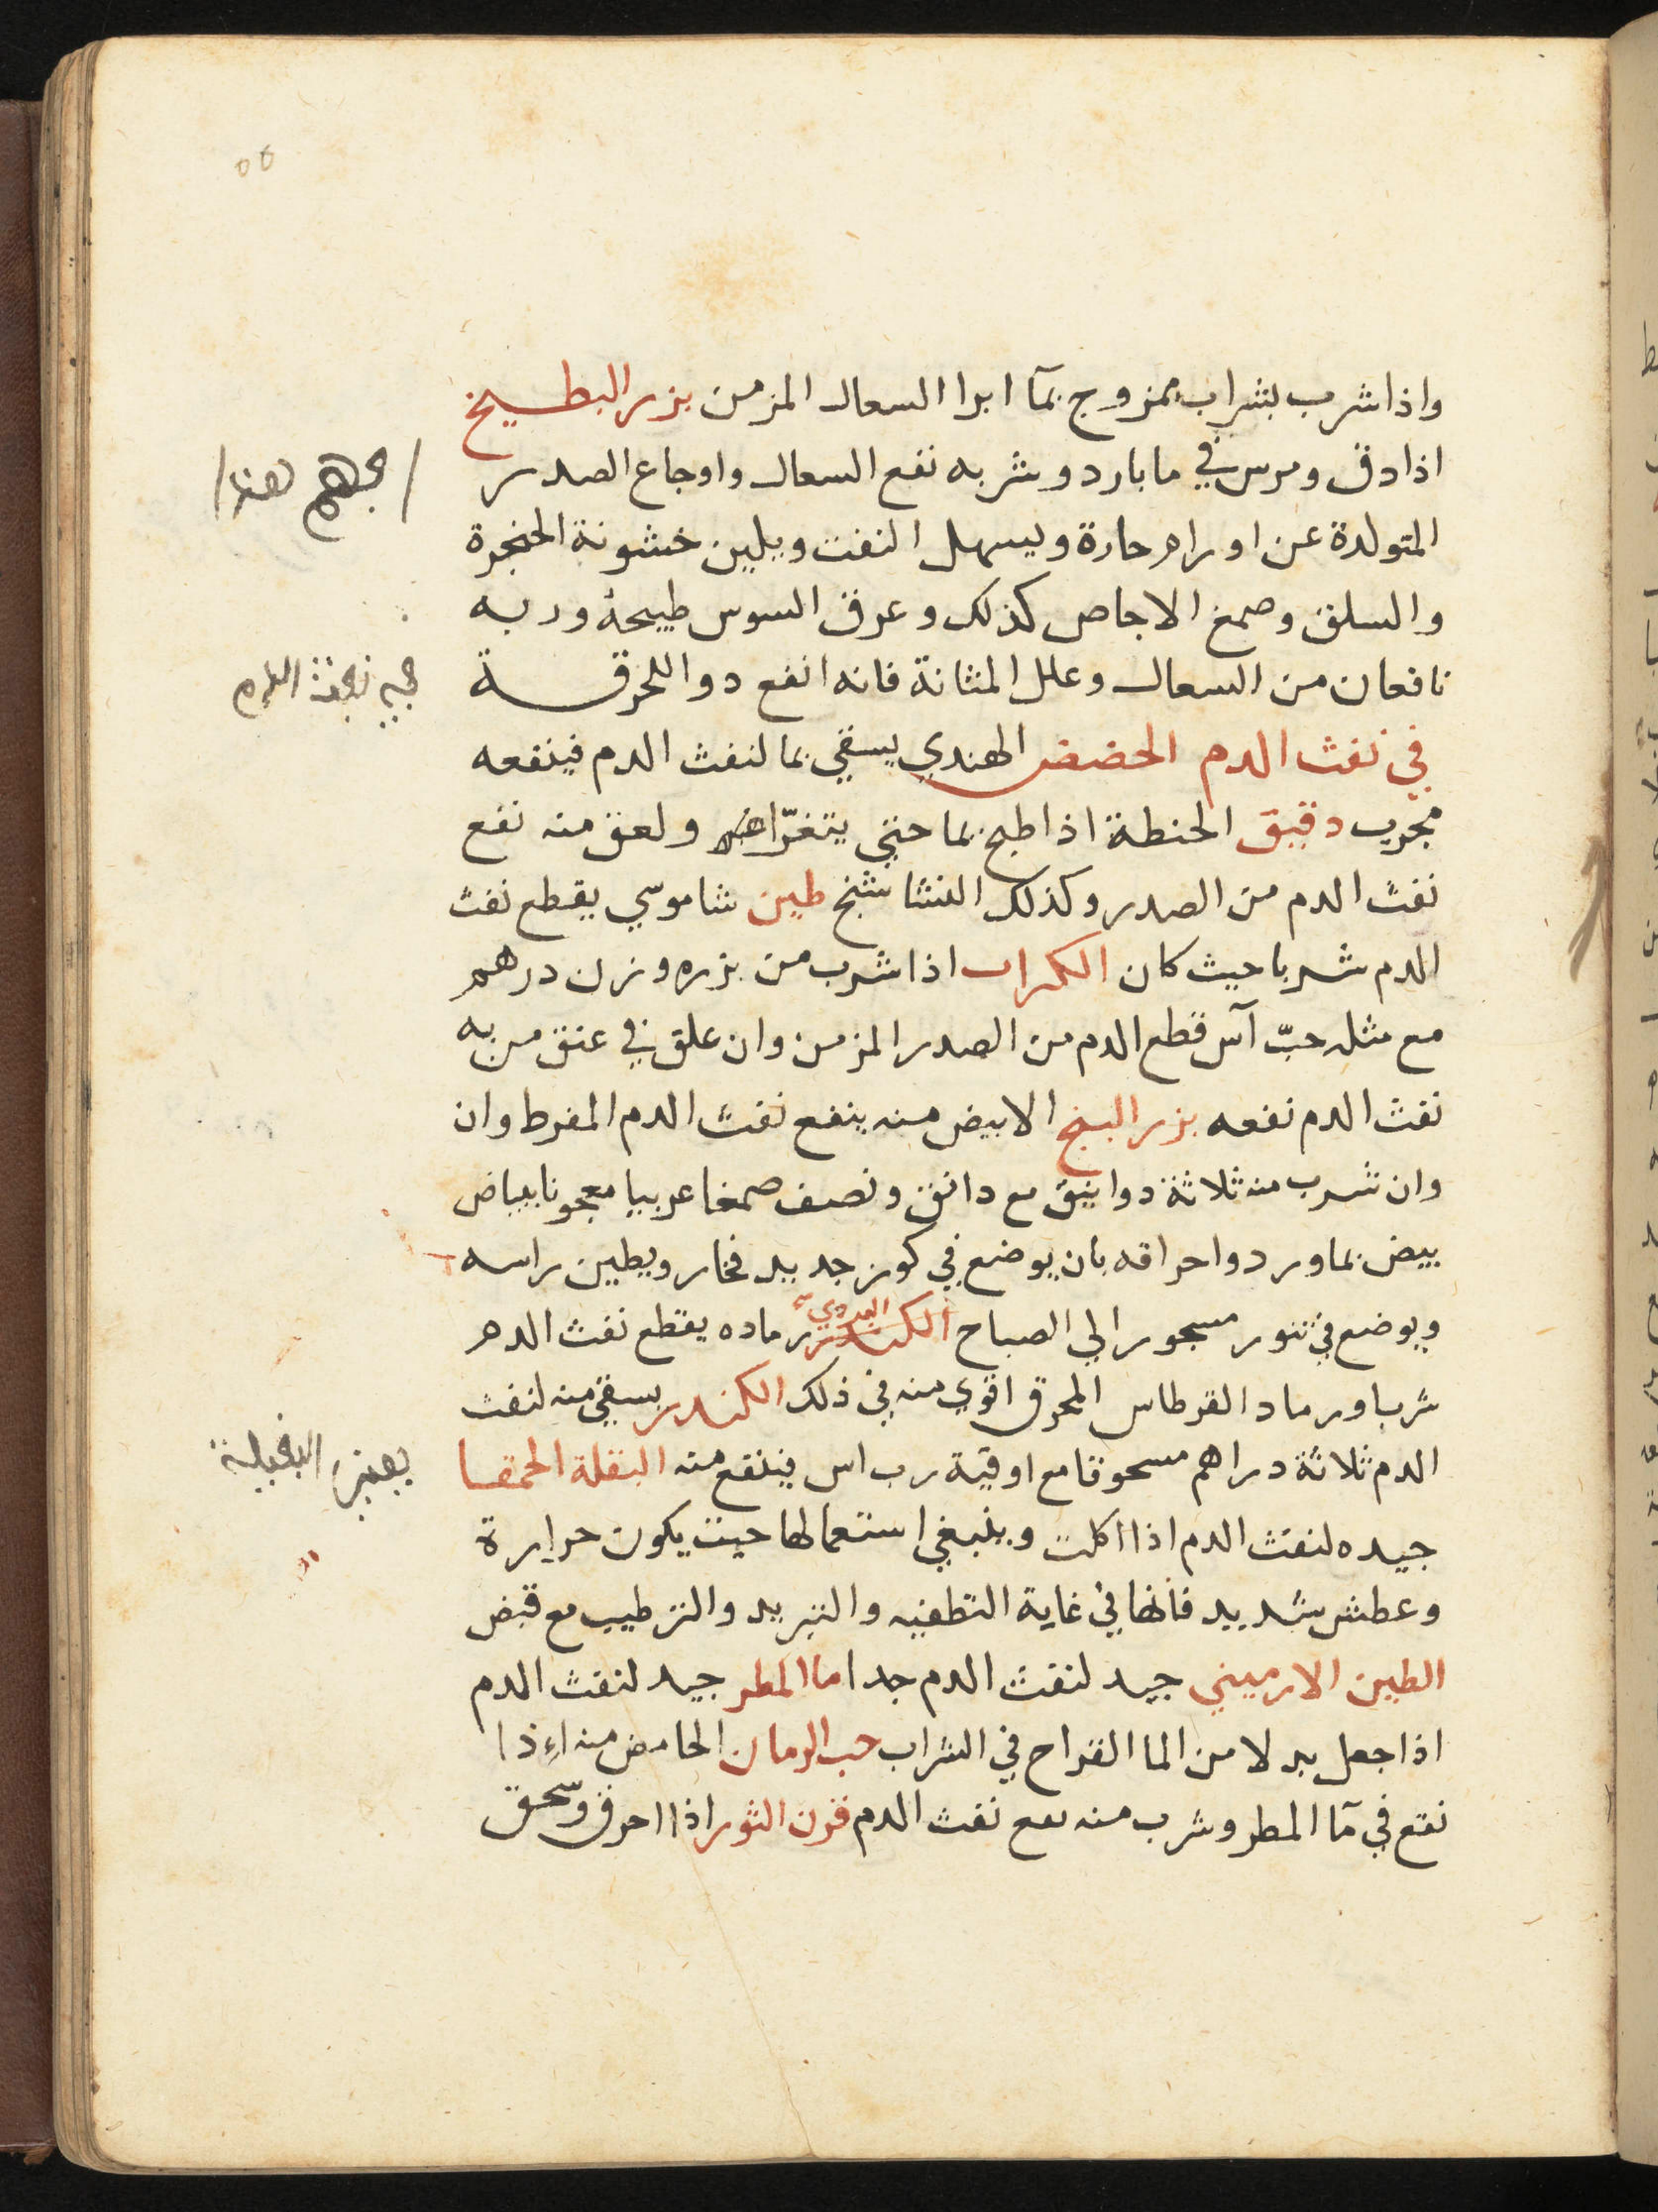 واذا شرب بشراب ممزوج بمآ ابرا السعال المزمن بزر البطيخ
اذا دق ومرس في ما بارد وشربه نفع السعال واوجاع الصدر
المتولدة عن اورام حارة ويسهل النفث ويلين خشونة الحنجرة
والسلق وصمغ الاجاص كذلك وعرق السوس طبيخه وربه
نافعان من السعال وعلل المثانة فانه انفع دوا للحرقة
في نفث الدم الحضض الهندي يسقي بما لنفث الدم فينفعه
مجرب دقيق الحنطة اذا طبخ بما حتي يتغرّا ولعق منه نفع
نفث الدم من الصدر وكذلك النشا طين شاموسي يقطع نفث
الدم شربا حيث كان الكراث اذا شرب من بزره وزن درهم
مع مثله حبّ آس قطع الدم من الصدر المزمن وان علق في عنق من به
نفث الدم نفعه بزر البنج الابيض منه ينفع نفث الدم المفرط وان
وان شرب منه ثلاثة دوانيق مع دانق ونصف صمغا عربيا معجونا ببياض
بيض بماورد واحراقه بان يوضع في كوز جديد فخار ويطين راسه
ويوضع في تنور مسجور الي الصباح البردي رماده يقطع نفث الدم
شربا ورماد القرطاس المحرق اقوي منه في ذلك الكندر يسقي منه لنفث
الدم ثلاثة دراهم مسحوقا مع اوقية رب اس فينفع منه البقلة الحمقا
جيده لنفث الدم اذا اكلت وينبغي استعمالها حيث يكون حرارة
وعطش شديد فانها في غاية التطفيه والتبريد والترطيب مع قبض
الطين الارميني جيد لنفث الدم جدا ما المطر جيد لنفث الدم
اذا جعل بدلا من الما القراح في الشراب حب الرمان الحامض منه اذا
نقع في مآ المطر وشرب منه نفع نفث الدم قرن الثور اذا احرق وسحق